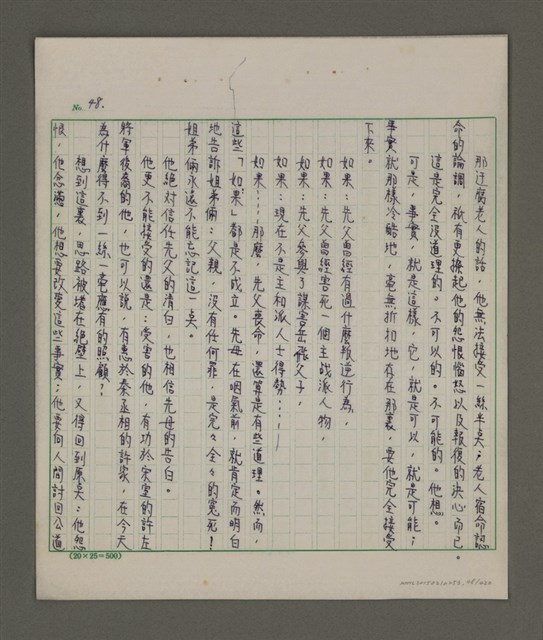 No. 48.
那迂腐老人的話,他無法接受一絲半点;老人宿命認
命的論調,祇有更撩起他的怨恨惱怒以及報復的決心而已。
這是完全沒道理的。不可以的。不可能的。他想。
可是,事實,就是這樣,它,就是可以,就是可能;
事實就那樣冷酷地,毫無折扣地存在那裏,要他完全接受
下來。
如果:先父曾經有過什麼叛逆行為,
如果:先父曾經害死一個主战派人物,
如果:先父參與了謀害岳飛父子,
如果:現在不是主和派人士得勢……
如果……那麼,先父喪命,還算是有些道理。然而,
這些「如果」都是不成立。先母在咽氣前,就肯定而明白
地告訴姐弟倆:父親,沒有任何罪,是完々全々的冤死!
姐弟倆永遠不能忘記這一点。
他絕對信任先父的清白,也相信先母的告白。
他更不能接受的還是:受害的他,有功於宋室的許左
將軍後裔的他,也可以說,有惠於秦丞相的許家,在今天
為什麼得不到一絲一毫應有的照顧?
想到這裏,思路被堵在絕壁上,又得回到原点:他怨
恨,他忿懣,他想要改变這些事實;他要向人間討回公道
(20×25=500)